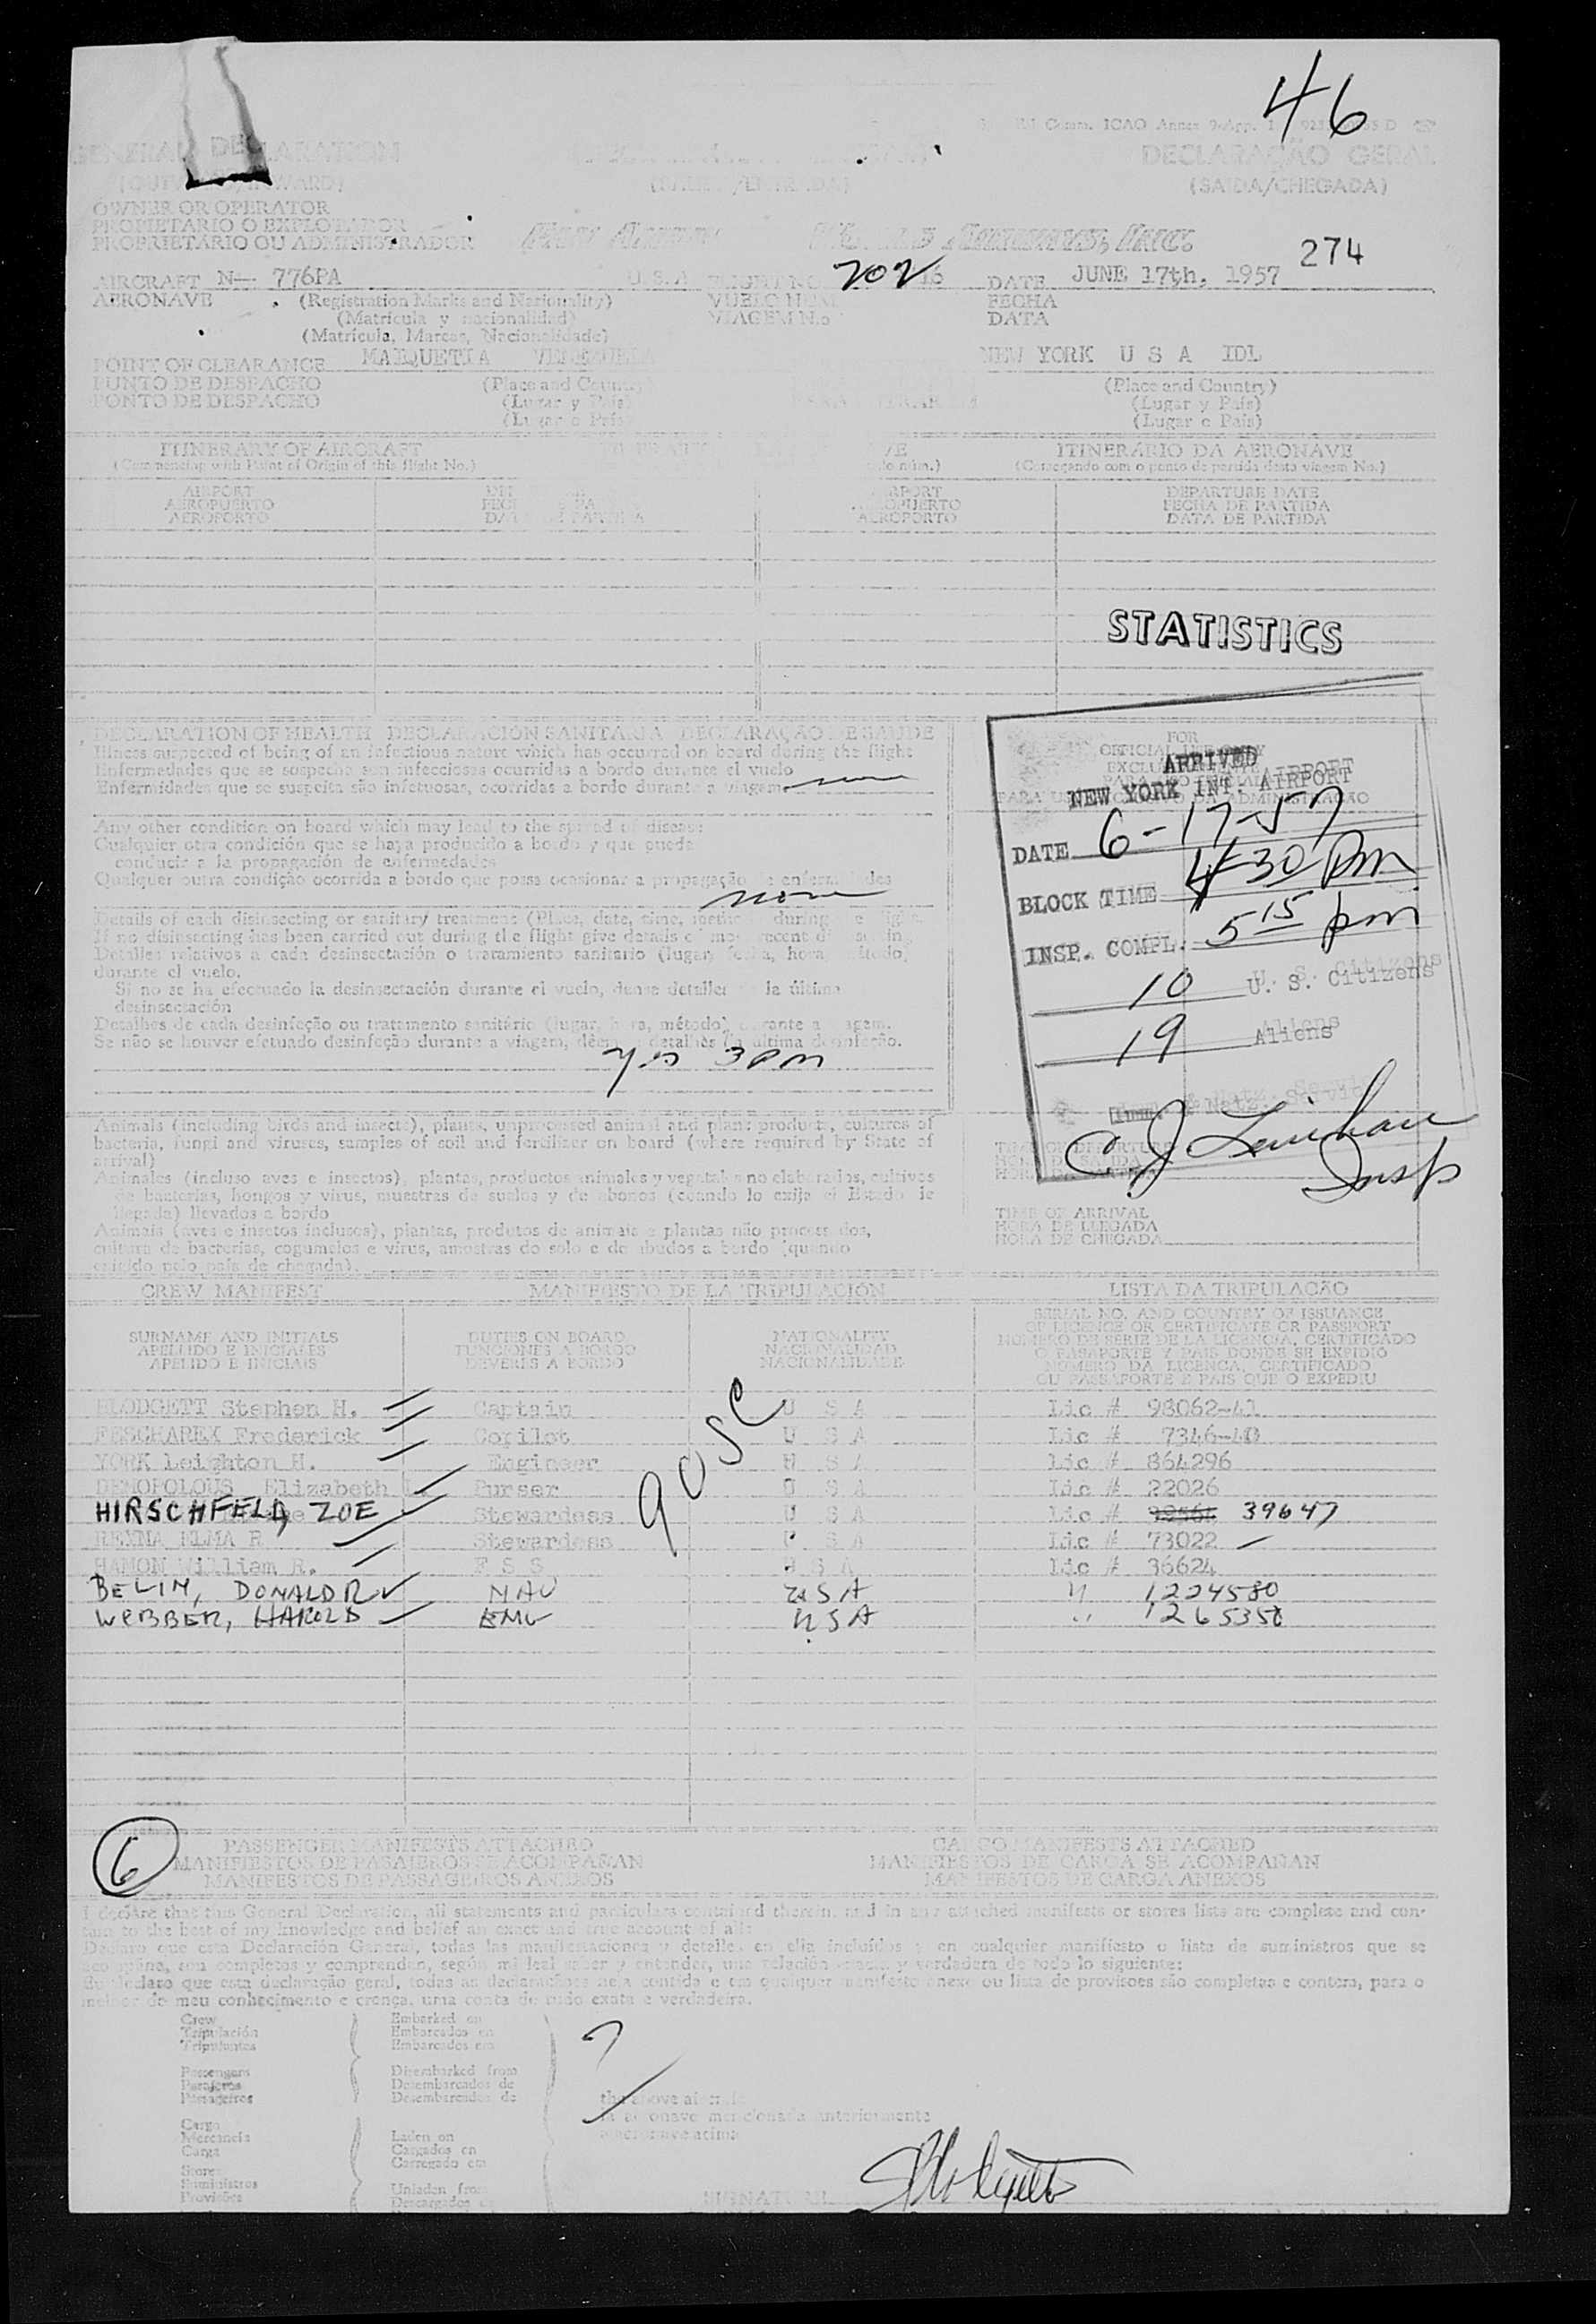 46
Comm. ICAO Annex 9-App. 1
GENERAL DECLARATION
DECLARAÇÃO GERAL
(OUTWARD/INWARD)
(SAIDA/CHEGADA)
OWNER OR OPERATOR
PROPIETARIO O EXPLOTADOR
PROPRIETÁRIO OU ADMINISTRADOR
PAN AMERICAN WORLD AIRWAYS, INC.
274
AIRCRAFT N— 776PA U.S.A FLIGHT NO 202 16 DATE JUNE 17th, 1957
AERONAVE (Registration Marks and Nationality) VUELO NUM FECHA
(Matrícula y nacionalidad) VIAGEM N.o DATA
(Matrícula, Marcas, Nacionalidade)
POINT OF CLEARANCE MAIQUETIA VENEZUELA NEW YORK U S A IDL
PUNTO DE DESPACHO (Place and Country) (Place and Country)
PONTO DE DESPACHO (Lugar y País) (Lugar y País)
(Lugar o País) (Lugar o País)
ITINERARY OF AIRCRAFT ITINERÁRIO DA AERONAVE
(Commencing with Point of Origin of this flight No.) (Começando com o ponto de partida desta viagem No.)
AIRPORT AIRPORT DEPARTURE DATE
AEROPUERTO AEROPUERTO FECHA DE PARTIDA
AEROPORTO AEROPORTO DATA DE PARTIDA
STATISTICS
DECLARATION OF HEALTH DECLARACIÓN SANITARIA DECLARAÇÃO DE SAÚDE
Illness suspected of being of an infectious nature which has occurred on board during the flight
Enfermedades que se sospecha son infecciosas ocurridas a bordo durante el vuelo
Enfermidades que se suspeita são infetuosas, ocorridas a bordo durante a viagem
Any other condition on board which may lead to the spread of disease:
Cualquier otra condición que se haya producido a bordo y que pueda
conducir a la propagación de enfermedades
Qualquer outra condição ocorrida a bordo que possa ocasionar a propagação de enfermidades
none
Details of each disinsecting or sanitary treatment (Place, date, time, method) during the flight.
If no disinsecting has been carried out during the flight give details of most recent disinsecting
Detalles relativos a cada desinsectación o tratamiento sanitario (lugar, fecha, hora, método)
durante el vuelo.
Si no se ha efectuado la desinsectación durante el vuelo, dense detalles de la última
desinsectación
Detalhes de cada desinfeção ou tratamento sanitário (lugar, hora, método) durante a viagem.
Se não se houver efetuado desinfeção durante a viagem, dêem detalhes da última desinfeção.
yes 3 PM
FOR
OFFICIAL USE ONLY
ARRIVED
NEW YORK INT. AIRPORT
DATE 6-17-57
BLOCK TIME 4 30 Pm
INSP. COMPL. 5 15 pm
10 U. S. Citizens
19 Aliens
Imm. & Natz. Service
C J Lenihan
Insp
Animals (including birds and insects), plants, unprocessed animal and plant products, cultures of
bacteria, fungi and viruses, samples of soil and fertilizer on board (where required by State of
arrival)
Animales (incluso aves e insectos), plantas, productos animales y vegetales no elaborados, cultivos
de bacterias, hongos y virus, muestras de suelos y de abonos (cuando lo exija el Estado de
llegada) llevados a bordo
Animais (aves e insetos inclusos), plantas, produtos de animais e plantas não processados,
cultura de bacterias, cogumelos e virus, amostras do solo e de abudos a bordo (quando
exigido pelo país de chegada).
TIME OF ARRIVAL
HORA DE LLEGADA
HORA DE CHEGADA
CREW MANIFEST MANIFIESTO DE LA TRIPULACIÓN LISTA DA TRIPULACÃO
SURNAME AND INITIALS DUTIES ON BOARD NATIONALITY SERIAL NO. AND COUNTRY OF ISSUANCE
APELLIDO E INICIALES FUNCIONES A BORDO NACIONALIDAD OF LICENCE OR CERTIFICATE OR PASSPORT
APELIDO E INICIAIS DEVERES A BORDO NACIONALIDADE NUMERO DE SERIE DE LA LICENCIA, CERTIFICADO
O PASAPORTE Y PAIS DONDE SE EXPIDIO
NUMERO DA LICENCA, CERTIFICADO
OU PASSAPORTE E PAIS QUE O EXPEDIU
BLODGETT Stephen H. Captain U S A Lic # 98062-41
FESCHAREK Frederick Copilot U S A Lic # 7346-40
YORK Leighton H. Engineer U S A Lic # 864296
DEMOPOLOUS Elizabeth Purser U S A Lic # 22026
HIRSCHFELD, ZOE Stewardess U S A Lic # 39647
REYNA ELMA R Stewardess U S A Lic # 73022
HAMON William R. F S S U S A Lic # 36624
BELIN, DONALD R NAV USA " 1224580
WEBBER, HAROLD ENG USA " 1265350
90SC
6
PASSENGER MANIFESTS ATTACHED CARGO MANIFESTS ATTACHED
MANIFIESTOS DE PASAJEROS SE ACOMPAÑAN MANIFIESTOS DE CARGA SE ACOMPAÑAN
MANIFESTOS DE PASSAGEIROS ANEXOS MANIFESTOS DE CARGA ANEXOS
I declare that this General Declaration, all statements and particulars contained therein, and in any attached manifests or stores lists are complete and con-
tain to the best of my knowledge and belief an exact and true account of all:
Declaro que esta Declaración General, todas las manifestaciones y detalles en ella incluídos y en cualquier manifiesto o lista de suministros que se
acompañe, son completos y comprenden, según mi leal saber y entender, una relación exacta y verdadera de todo lo siguiente:
Eu declaro que esta declaração geral, todas as declarações nela contida e em qualquer manifesto anexo ou lista de provisoes são completas e contem, para o
melhor do meu conhecimento e crença, uma conta de tudo exata e verdadeira.
Crew Embarked on
Tripulación Embarcados en
Tripulantes Embarcados em
Passengers Disembarked from
Pasajeros Desembarcados de
Passageiros Desembarcados de
the above aircraft
la aeronave mencionada anteriormente
a aeronave acima
Cargo Laden on
Mercancía Cargados en
Carga Carregado em
Stores
Suministros Unladen from
Provisões Descargados
SIGNATURE SBlodgett